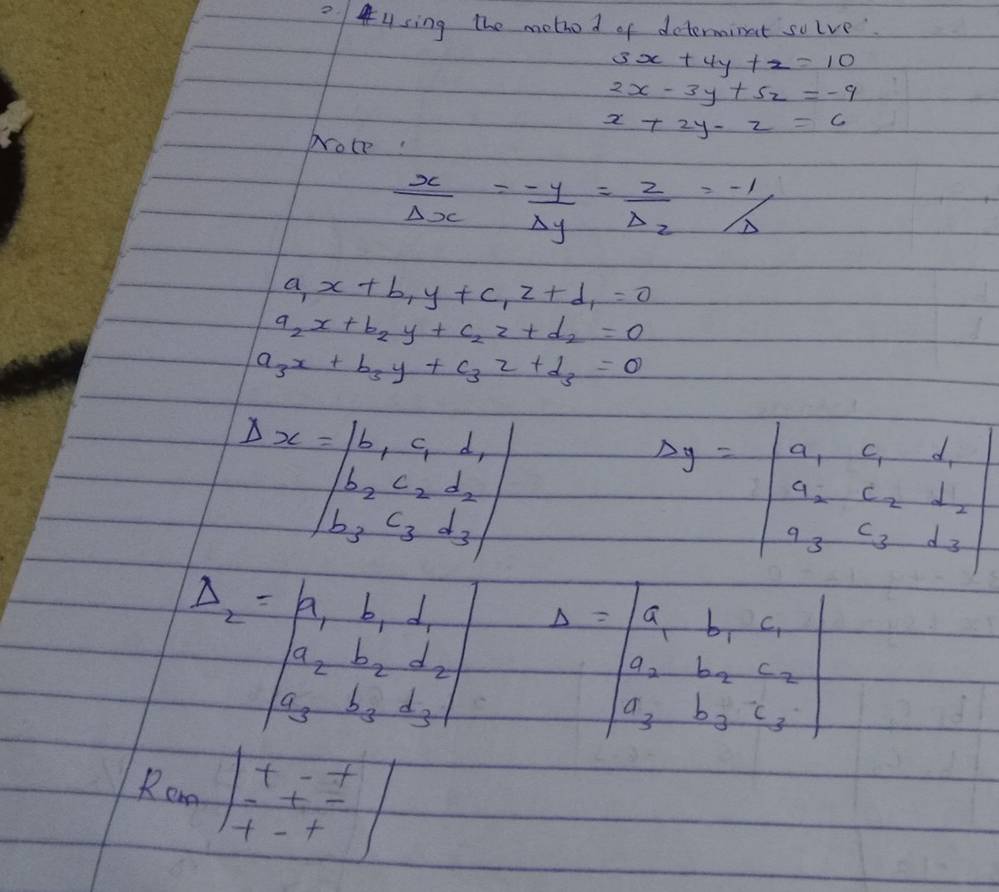 2. Using the method of determinat solve:
3x + 4y + z = 10
2x - 3y + 5z = -9
x + 2y - z = 6
Note:
x/Δx = -y/Δy = z/Δz = -1/Δ
a₁x + b₁y + c₁z + d₁ = 0
a₂x + b₂y + c₂z + d₂ = 0
a₃x + b₃y + c₃z + d₃ = 0
Δx = |b₁ c₁ d₁| Δy = |a₁ c₁ d₁|
|b₂ c₂ d₂| |a₂ c₂ d₂|
|b₃ c₃ d₃| |a₃ c₃ d₃|
Δz = |a₁ b₁ d₁| Δ = |a₁ b₁ c₁|
|a₂ b₂ d₂| |a₂ b₂ c₂|
|a₃ b₃ d₃| |a₃ b₃ c₃|
Rem |+ - +|
|- + -|
|+ - +|